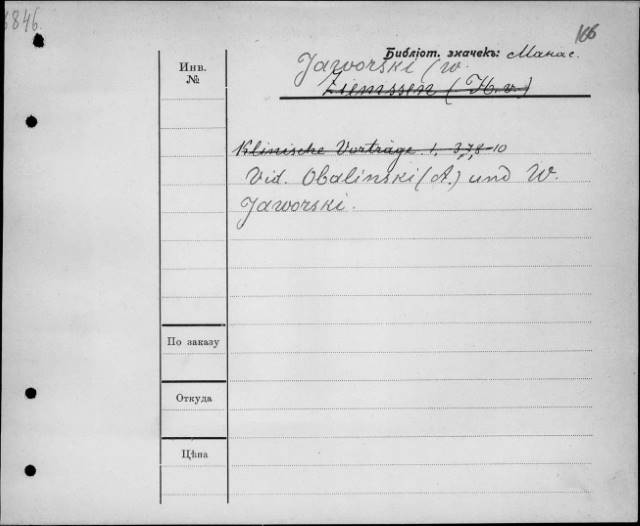 846.
166
Библіот. значекъ: Манас.
Инв.
№
Jaworski (W.
Ziemssen (H. v.)
Klinische Vorträge 1, 3,7,8-10
Vid. Obalinski (A.) und W.
Jaworski.
По заказу
Откуда
Цѣна